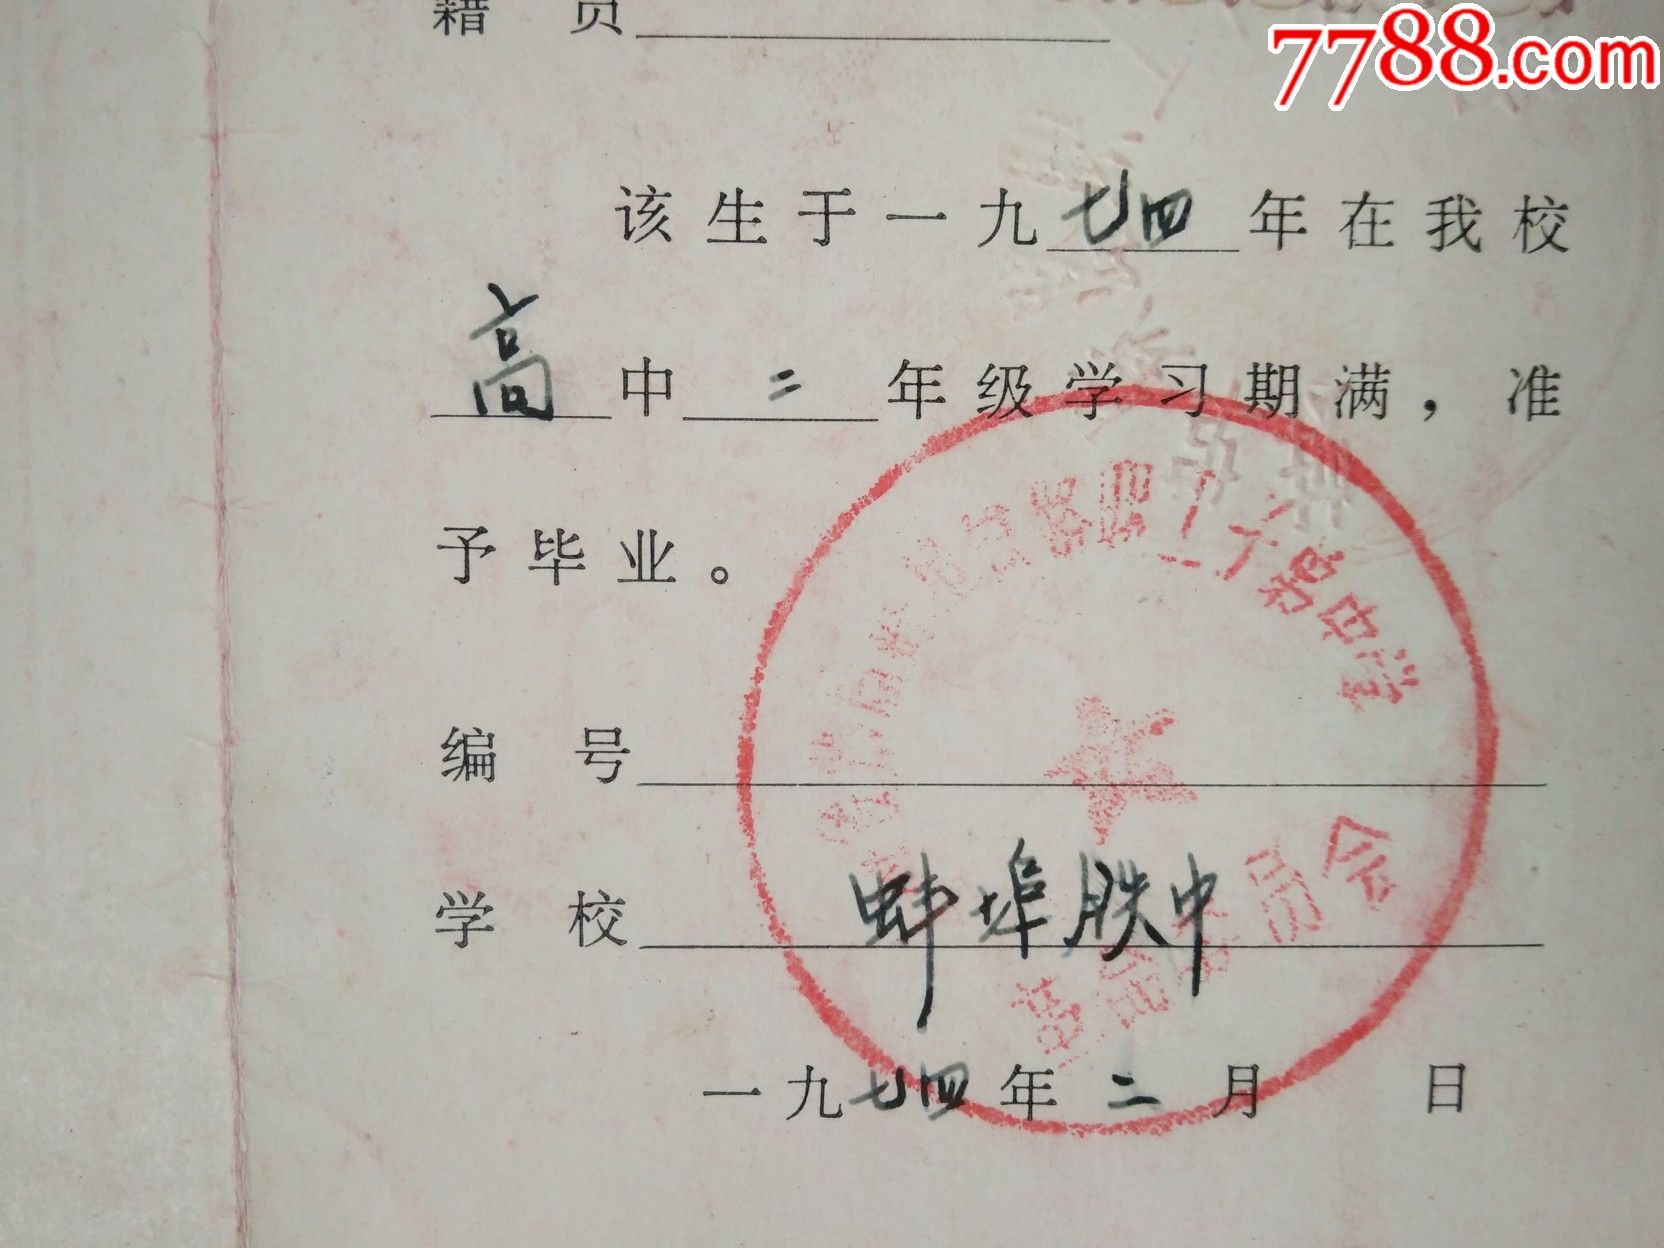 7788.com
籍 贯
该生于一九七四年在我校
高中二年级学习期满，准
予毕业。
编 号
学 校 蚌埠铁中
一九七四年二月 日
中学
革命委员会